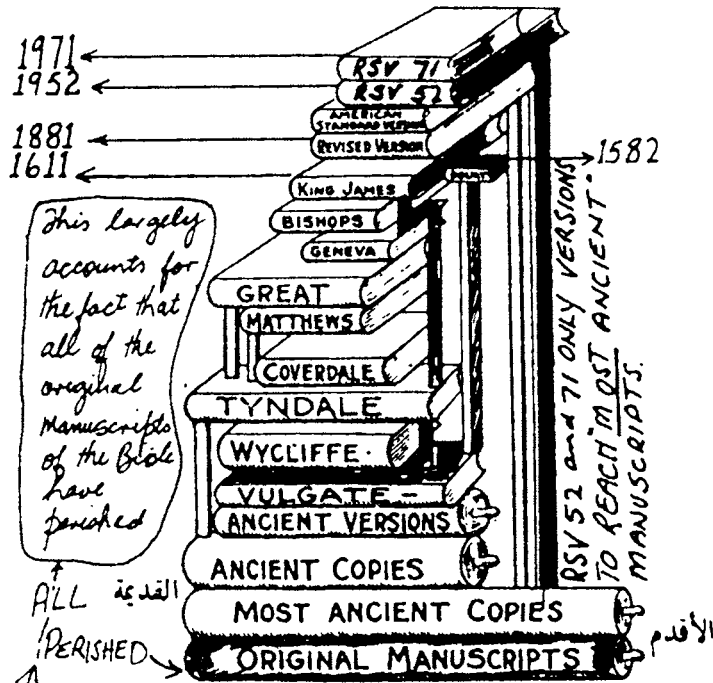 1971
RSV 71
1952
RSV 52
AMERICAN
STANDARD VERSION
1881
REVISED VERSION
1611
1582
DOUAY
KING JAMES
BISHOPS
GENEVA
GREAT
MATTHEWS
COVERDALE
TYNDALE
WYCLIFFE.
VULGATE –
ANCIENT VERSIONS
ANCIENT COPIES
MOST ANCIENT COPIES
ORIGINAL MANUSCRIPTS
This largely
accounts for
the fact that
all of the
original
Manuscripts
of the Bible
have
perished
ALL
PERISHED
القديمة
الأقدم
RSV 52 and 71 ONLY VERSIONS
TO REACH "MOST ANCIENT"
MANUSCRIPTS.